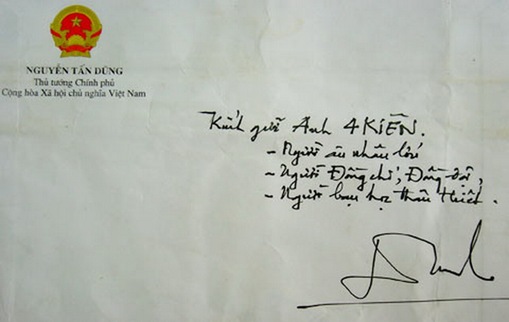 NGUYỄN TẤN DŨNG
Thủ tướng Chính phủ
Cộng hòa Xã hội chủ nghĩa Việt Nam
Kính gửi Anh 4 KIÊN.
- Người ân nhân lớn
- Người Đồng chí, Đồng đội,
- Người bạn học thân thiết.